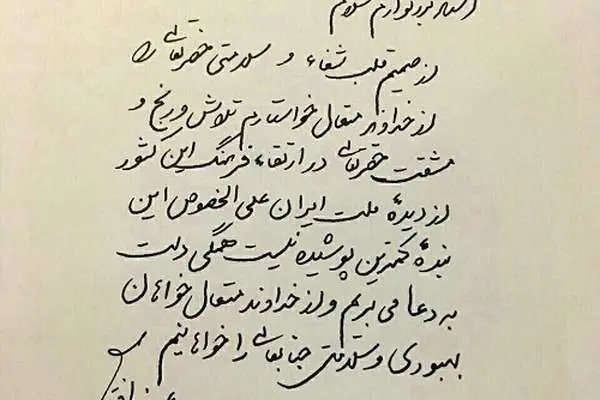 استاد بزرگوارم سلام
از صمیم قلب شفاء و سلامتی حضرتعالی را
از خداوند متعال خواستارم تلاش و رنج و
مشقت حضرتعالی در ارتقاء فرهنگ این کشور
از دیدهٔ ملت ایران علی الخصوص این
بندهٔ کمترین پوشیده نیست همگی دست
به دعا می بریم و از خداوند متعال خواهان
بهبودی و سلامتی جنابعالی را خواهانیم